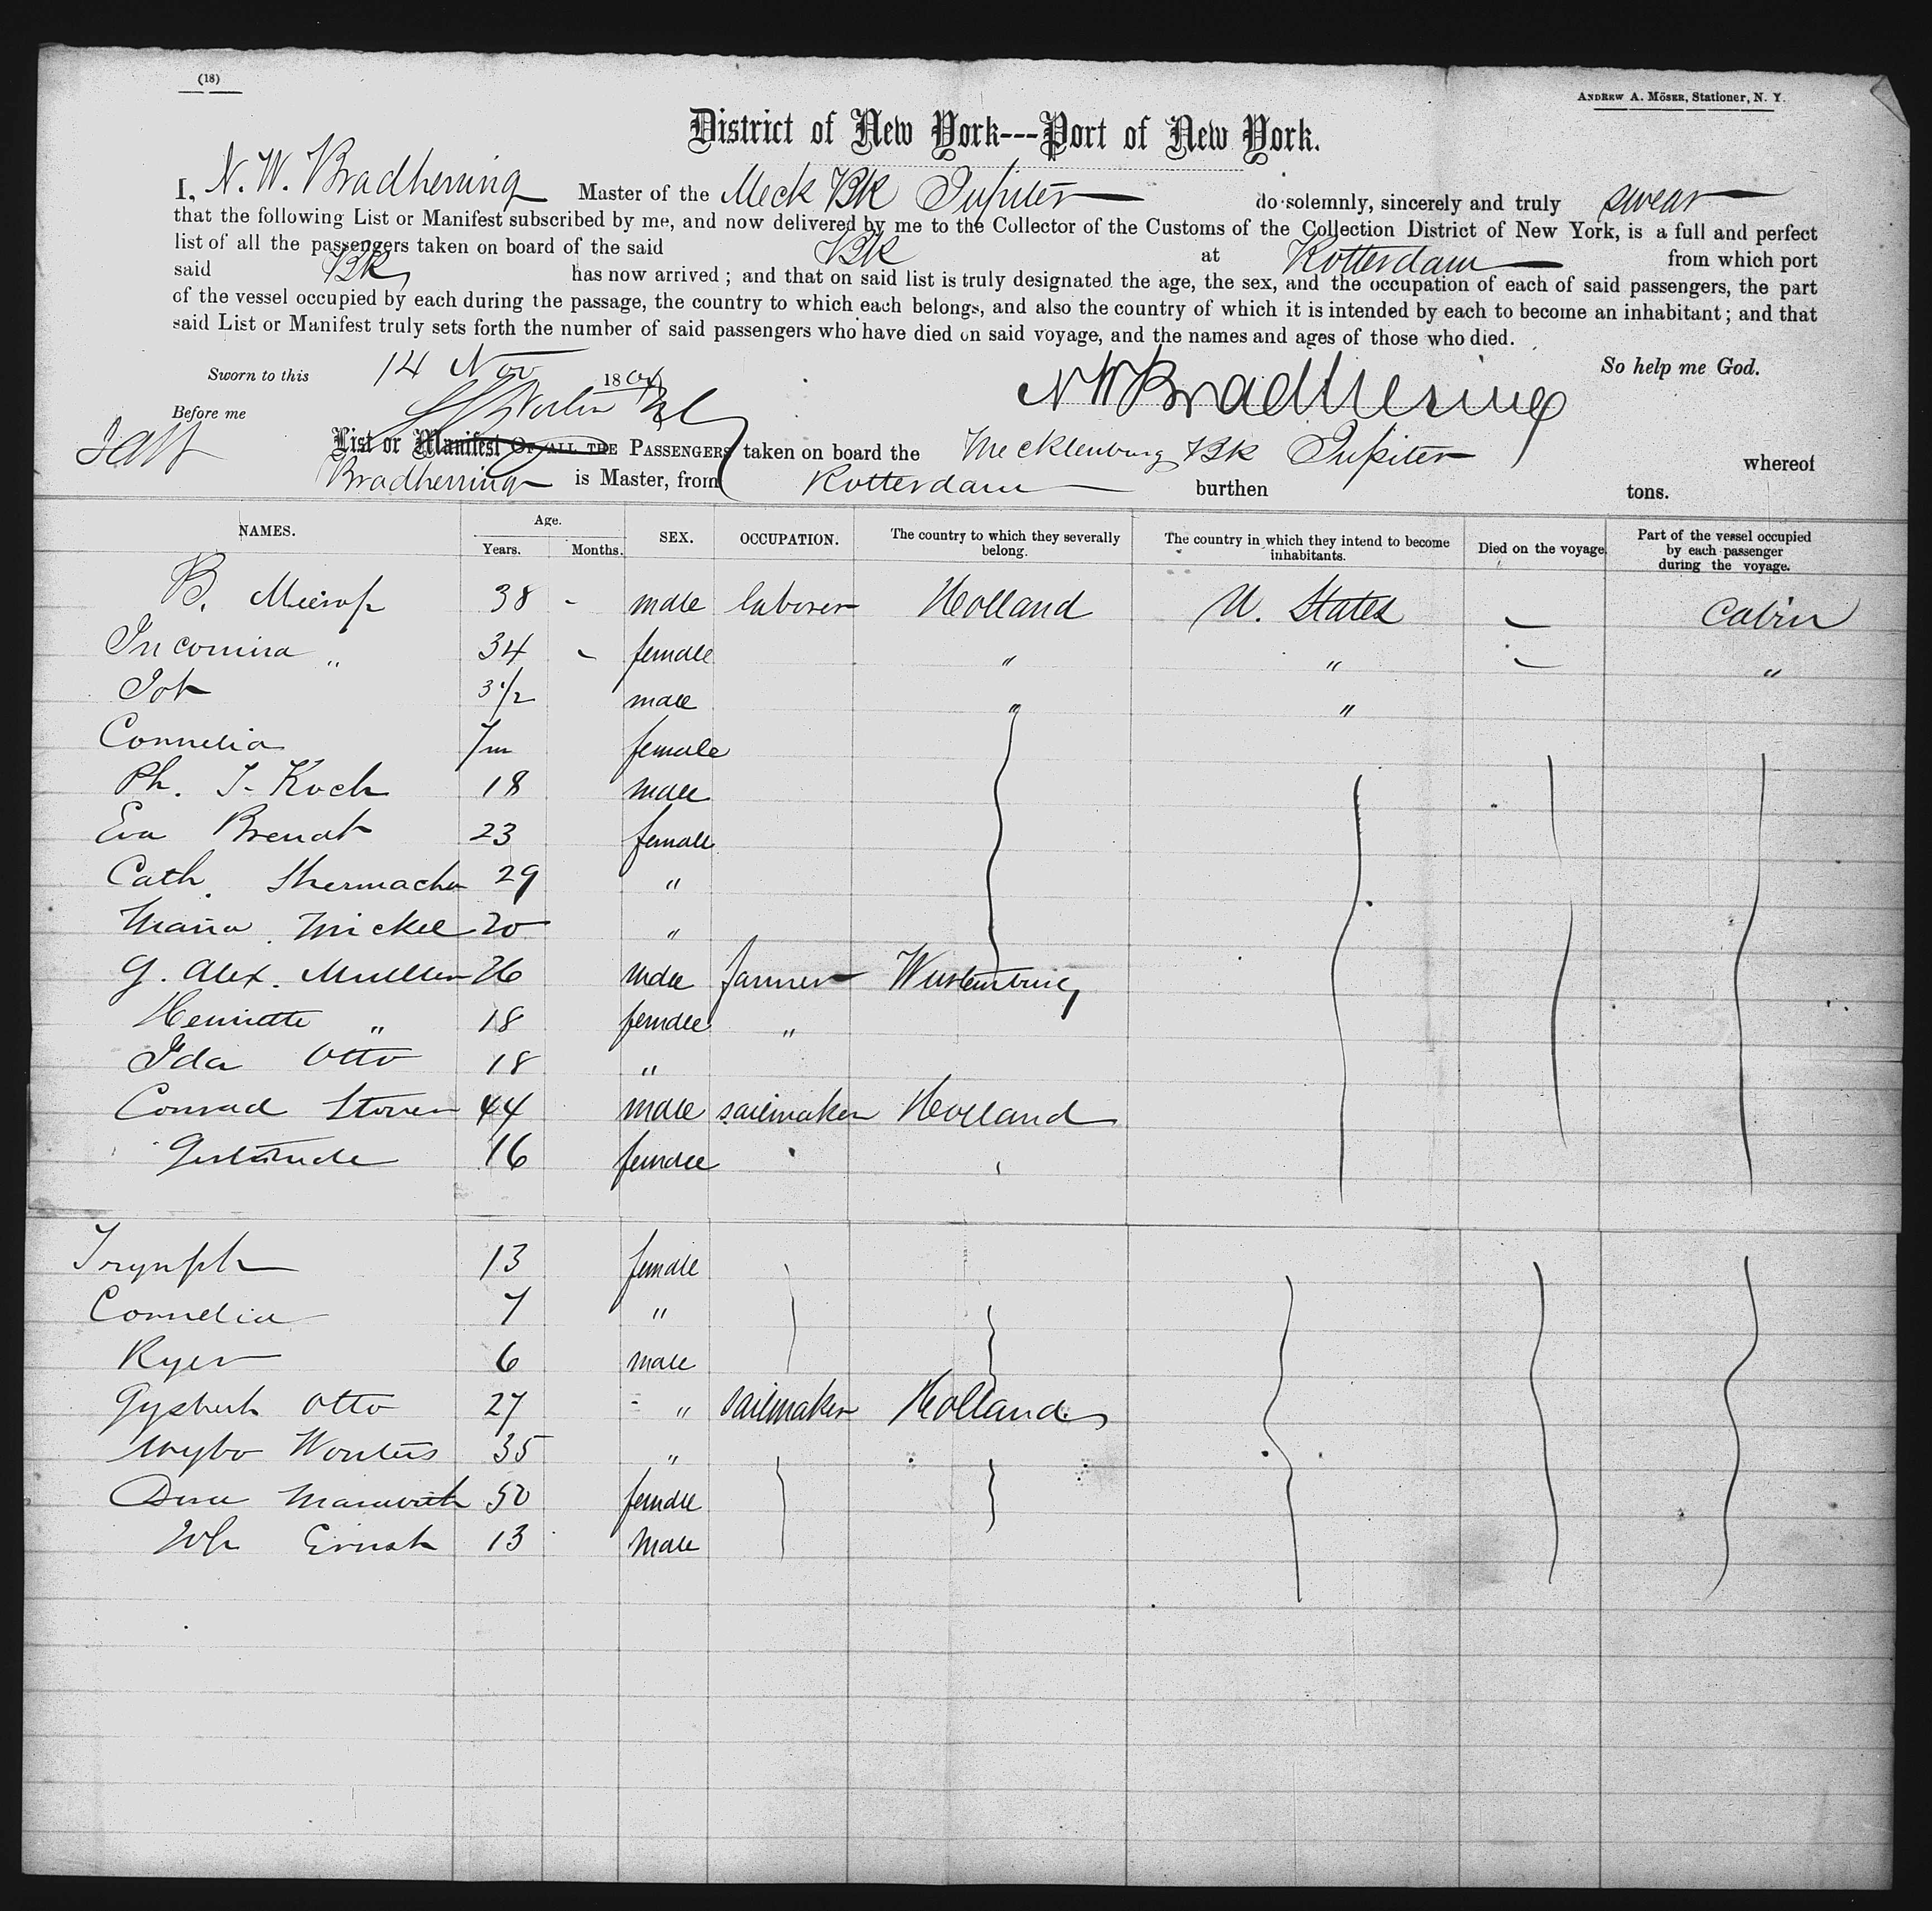 (18)
ANDREW A. MÖSER, Stationer, N. Y.
District of New York---Port of New York.
I, N. W. Bradhering Master of the Meck Bk Jupiter do solemnly, sincerely and truly swear
that the following List or Manifest subscribed by me, and now delivered by me to the Collector of the Customs of the Collection District of New York, is a full and perfect
list of all the passengers taken on board of the said Bk at Rotterdam from which port
said Bk has now arrived; and that on said list is truly designated the age, the sex, and the occupation of each of said passengers, the part
of the vessel occupied by each during the passage, the country to which each belongs, and also the country of which it is intended by each to become an inhabitant; and that
said List or Manifest truly sets forth the number of said passengers who have died on said voyage, and the names and ages of those who died.
So help me God.
Sworn to this 14 Nov 186
N W Bradhering
Before me
List or Manifest OF ALL THE PASSENGERS taken on board the Mecklenburg Bk Jupiter whereof
Bradhering is Master, from Rotterdam burthen tons.
NAMES. Age. Years. Months. SEX. OCCUPATION. The country to which they severally belong. The country in which they intend to become inhabitants. Died on the voyage. Part of the vessel occupied by each passenger during the voyage.
B. 38 - male laborer Holland U. States - Cabin
" 34 - female " " - "
3 1/2 male " "
Cornelia 7m female
Ph. J. Koch 18 male
Eva Brendt 23 female
Cath. 29 "
Maria Mickel 20 "
G. Alex. Muller 26 male farmer Wurtemburg
Henriette " 18 female "
Ida Otto 18 "
Conrad 44 male sailmaker Holland
Gertrude 16 female
13 female
Cornelia 7 "
Ryer 6 male
Gysbert Otto 27 " sailmaker Holland
Wybo Wouters 35 "
50 female
Ernst 13 male